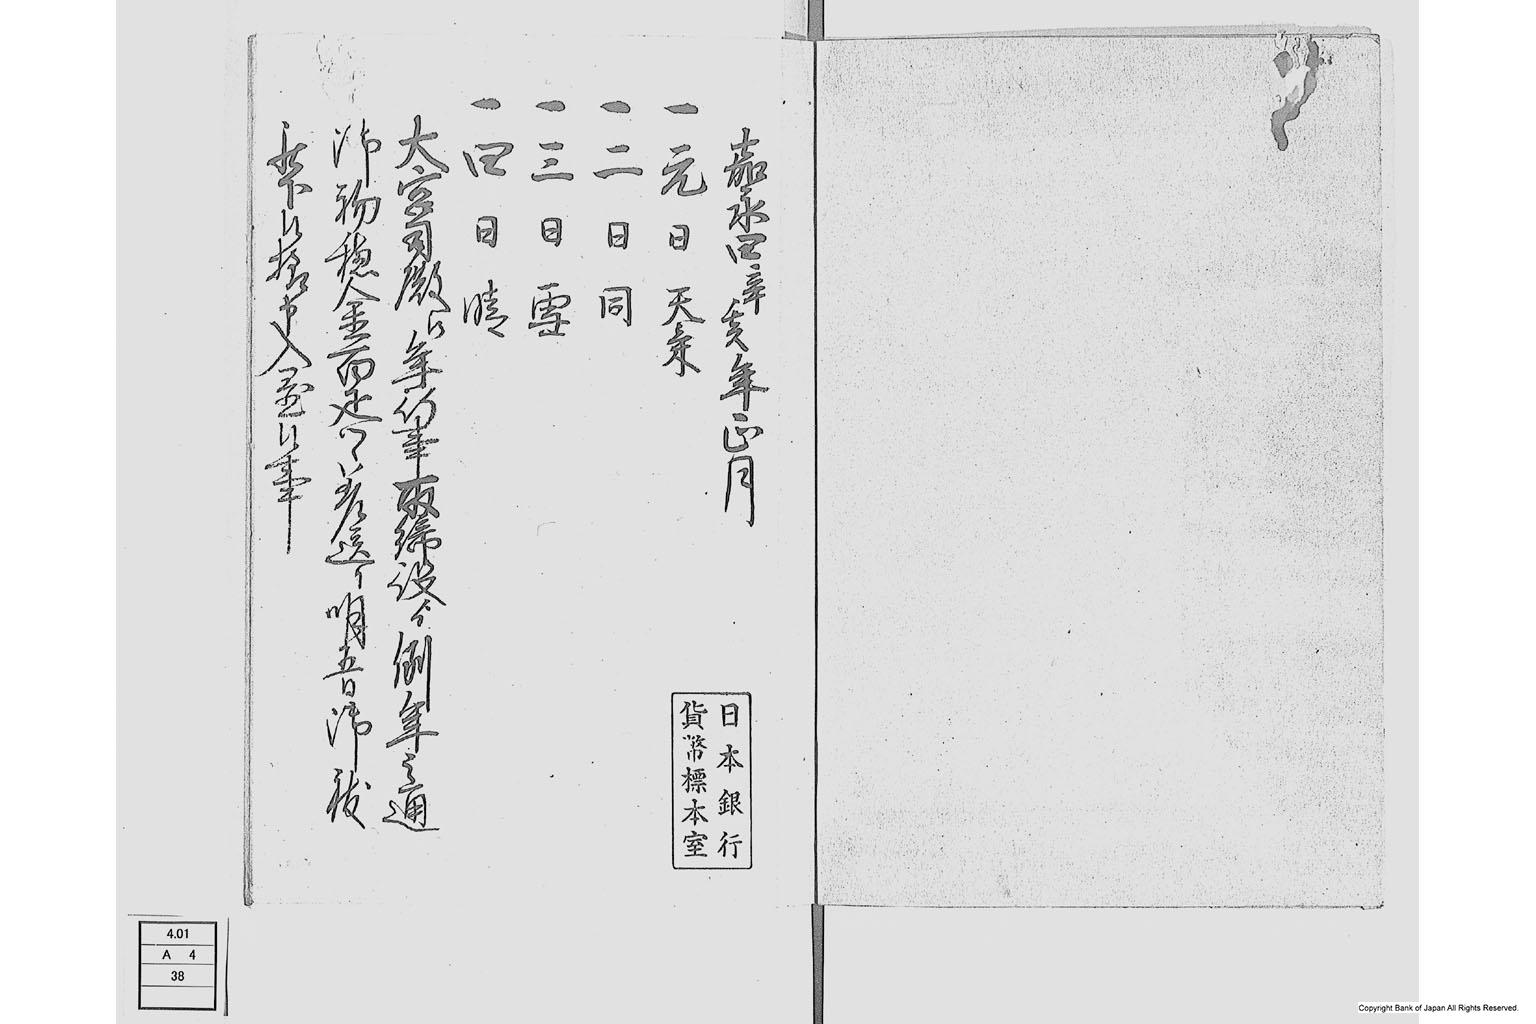 嘉永四辛亥年正月
一元日天気
一二日同
一三日雪
一四日晴
大宮司殿江年行事取締役ゟ例年之通
御初穂金百疋ツヽ差送り明五日御祓
日本銀行
貨幣標本室
4.01
A 4
38
Copyright Bank of Japan All Rights Reserved.